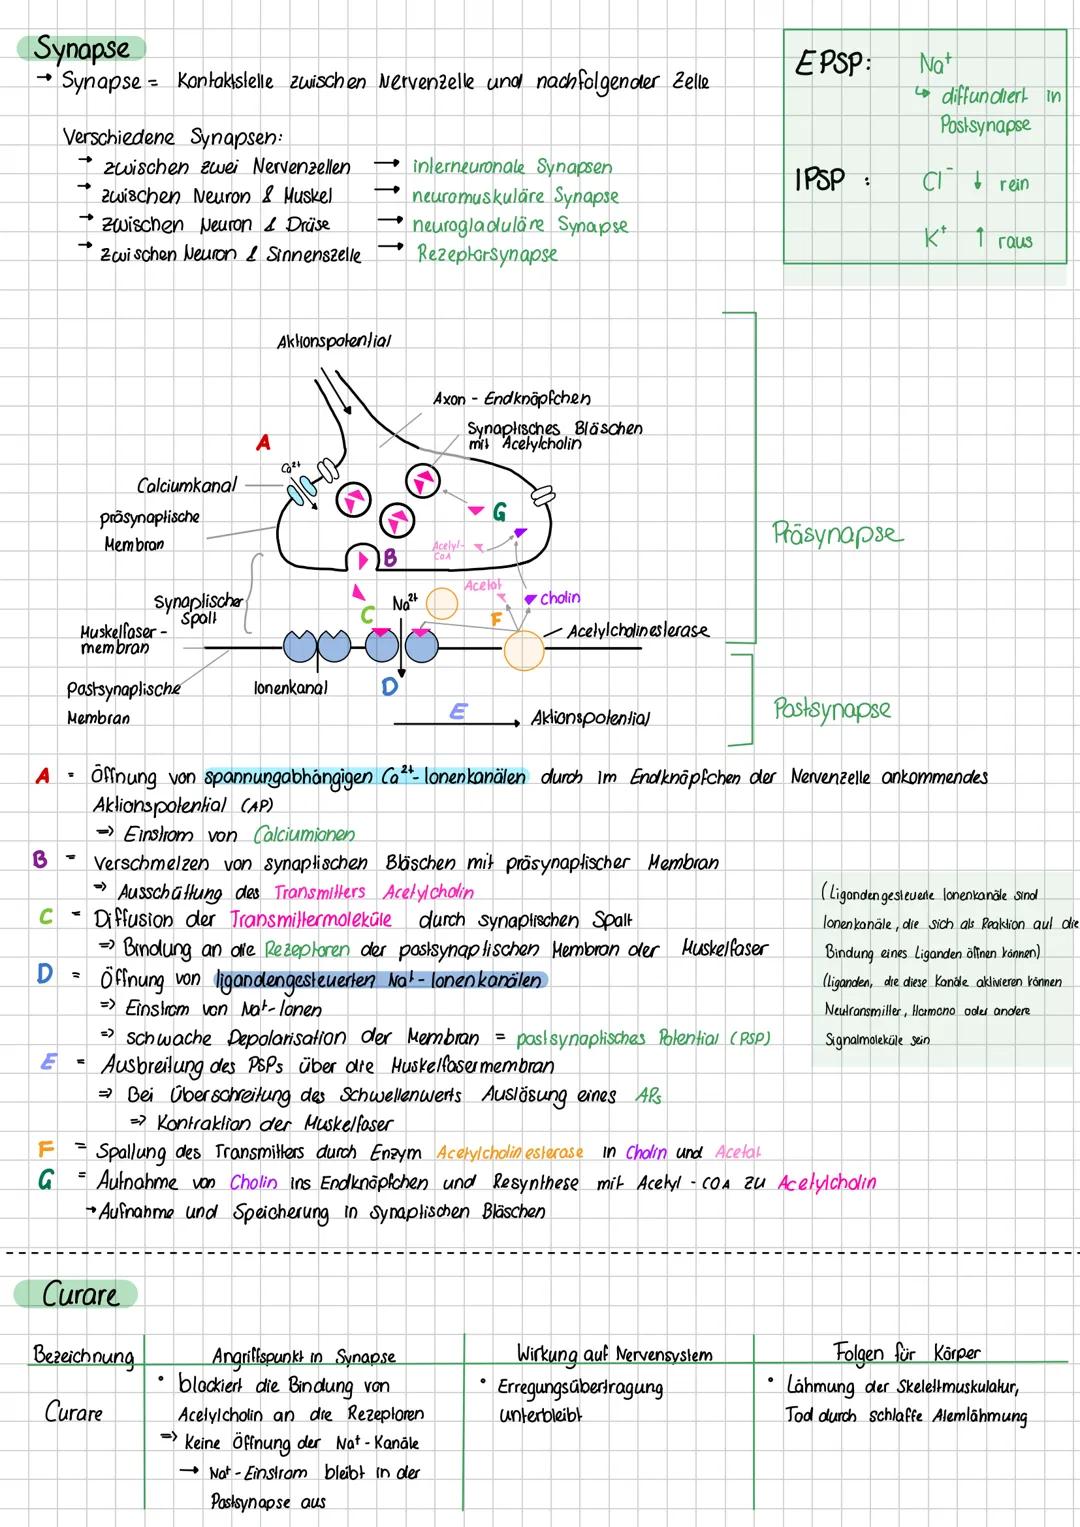 Synapse
→ Synapse = Kontaktstelle zwischen Nervenzelle und nachfolgender Zelle
Verschiedene Synapsen:
→ zwischen zwei Nervenzellen → interneuronale Synapsen
→ zwischen Neuron & Muskel → neuromuskuläre Synapse
→ zwischen Neuron & Drüse → neurogladuläre Synapse
→ zwischen Neuron & Sinnenszelle → Rezeptorsynapse
EPSP: Na⁺
↳ diffundiert in
Postsynapse
IPSP : Cl⁻ ↓ rein
K⁺ ↑ raus
Aktionspotential
Axon - Endknöpfchen
Synaptisches Bläschen
mit Acetylcholin
A
Ca²⁺
Calciumkanal
präsynaptische
Membran
G
B
Acetyl-
CoA
Präsynapse
Acetat
Cholin
Synaptischer
Spalt
C
Na²⁺
F
Muskelfaser-
membran
Acetylcholinesterase
Postsynaptische
Membran
Ionenkanal
D
E
Aktionspotential
Postsynapse
A = Öffnung von spannungabhängigen Ca²⁺-Ionenkanälen durch im Endknöpfchen der Nervenzelle ankommendes
Aktionspotential (AP)
=> Einstrom von Calciumionen
B = Verschmelzen von synaptischen Bläschen mit präsynaptischer Membran
=> Ausschüttung des Transmitters Acetylcholin
C = Diffusion der Transmittermoleküle durch synaptischen Spalt
=> Bindung an die Rezeptoren der postsynaptischen Membran der Muskelfaser
D = Öffnung von ligandengesteuerten Na⁺-Ionenkanälen
=> Einstrom von Na⁺-Ionen
=> schwache Depolarisation der Membran = postsynaptisches Potential (PSP)
E = Ausbreitung des PSPs über die Muskelfasermembran
=> Bei Überschreitung des Schwellenwerts Auslösung eines APs
=> Kontraktion der Muskelfaser
F = Spaltung des Transmitters durch Enzym Acetylcholinesterase in Cholin und Acetat
G = Aufnahme von Cholin ins Endknöpfchen und Resynthese mit Acetyl-COA zu Acetylcholin
→ Aufnahme und Speicherung in Synaptischen Bläschen
(Ligandengesteuerte Ionenkanäle sind
Ionenkanäle, die sich als Reaktion auf die
Bindung eines Liganden öffnen können)
(Liganden, die diese Kanäle aktivieren können
Neutransmitter, Hormone oder andere
Signalmoleküle sein
Curare
Bezeichnung Angriffspunkt in Synapse Wirkung auf Nervensystem Folgen für Körper
Curare
• blockiert die Bindung von
Acetylcholin an die Rezeptoren
=> Keine Öffnung der Na⁺-Kanäle
→ Na⁺-Einstrom bleibt in der
Postsynapse aus
• Erregungsübertragung
unterbleibt
• Lähmung der Skelettmuskulatur,
Tod durch schlaffe Atemlähmung